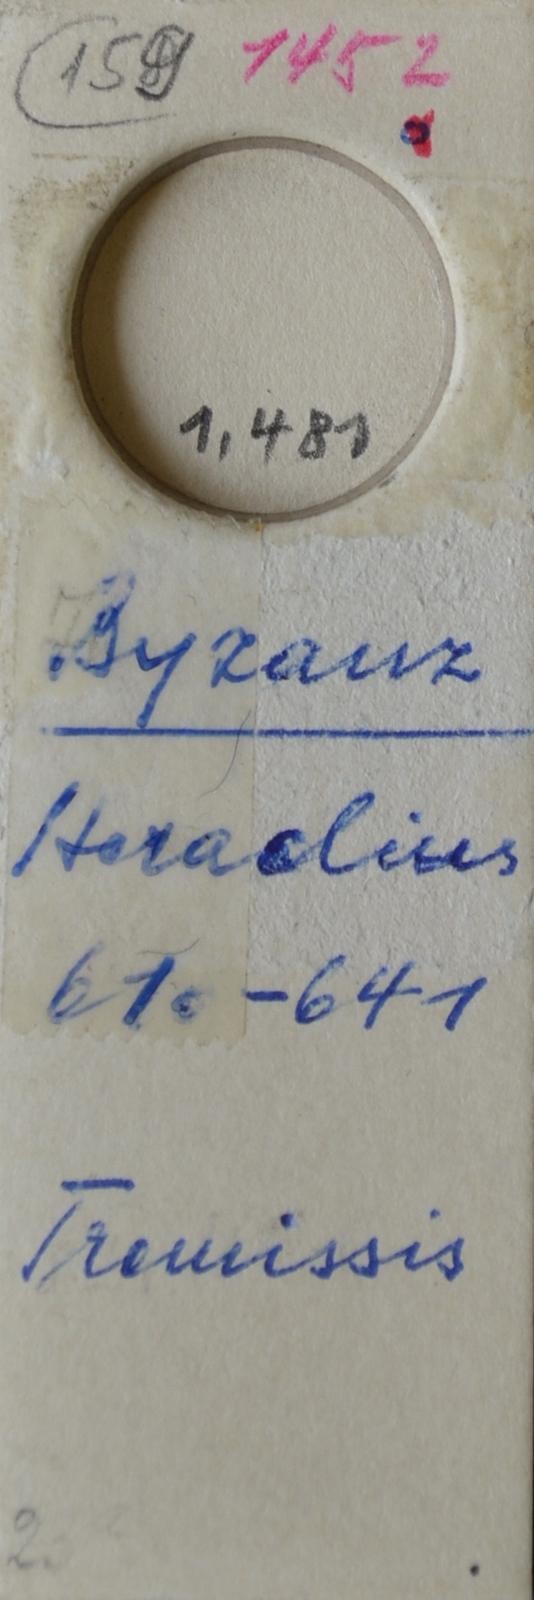 1452
1,481
Byzanz
Heraclius
610-641
Tremissis